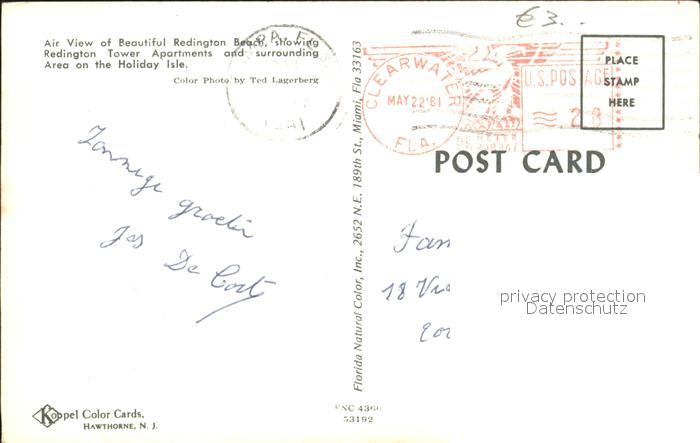 Air View of Beautiful Redington Beach, showing
Redington Tower Apartments and surrounding
Area on the Holiday Isle.
Color Photo by Ted Lagerberg
Zonnige groeten
Jos De Cort
Koppel Color Cards,
HAWTHORNE, N. J.
Florida Natural Color, Inc., 2652 N.E. 189th St., Miami, Fla 33163
FNC 4366
53192
€3..
CLEARWATER
MAY 22'81
FLA.
U.S. POSTAGE
PLACE
STAMP
HERE
POST CARD
Fam
18
privacy protection
Datenschutz